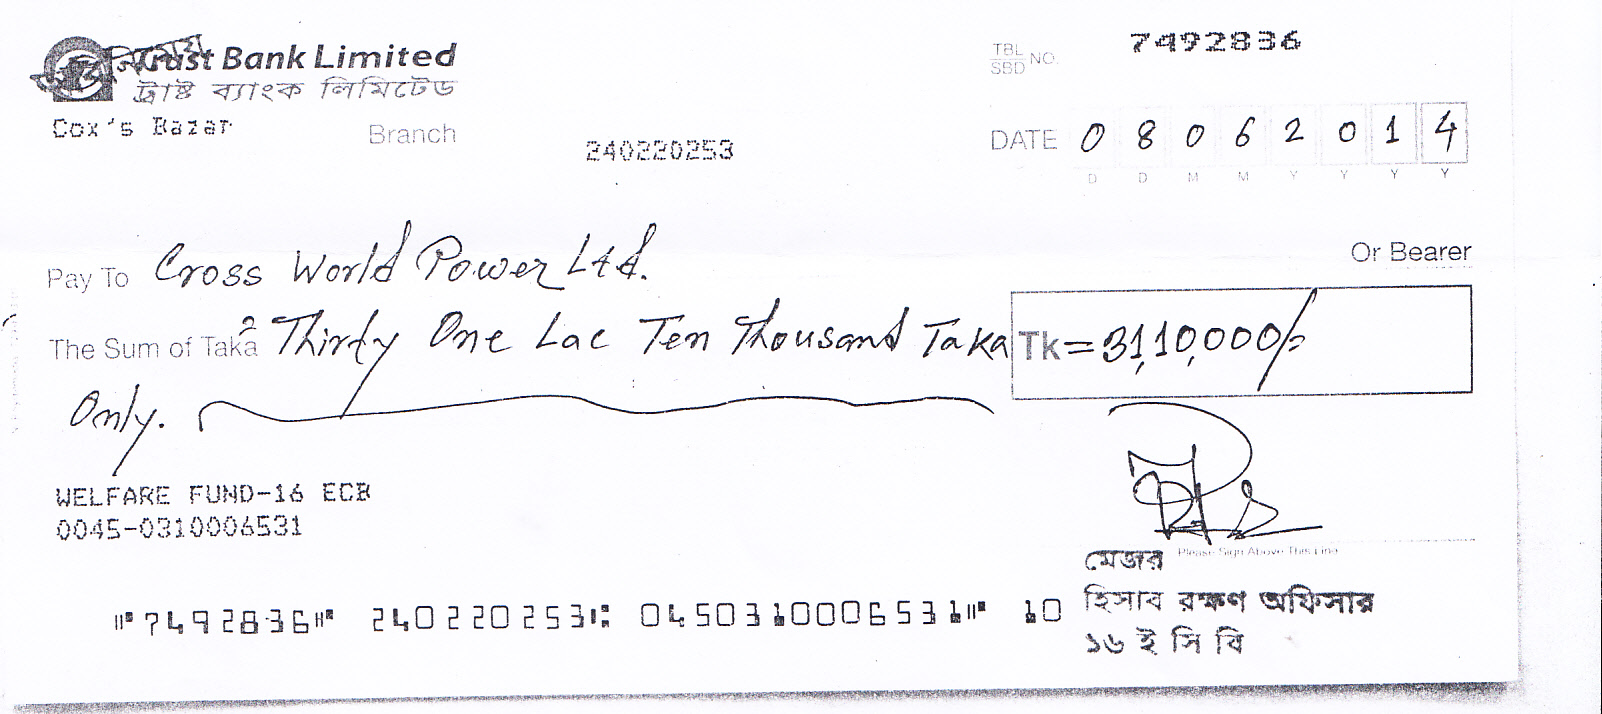 Trust Bank Limited
ট্রাষ্ট ব্যাংক লিমিটেড
Cox's Bazar Branch
240220253
TBL SBD NO. 7492836
DATE 08062014
D D M M Y Y Y Y
Pay To Cross World Power Ltd. Or Bearer
The Sum of Taka Thirty One Lac Ten Thousand Taka Tk=31,10,000/=
Only.
WELFARE FUND-16 ECB
0045-0310006531
Please Sign Above This Line
মেজর
হিসাব রক্ষণ অফিসার
১৬ ই সি বি
⑈7492836⑈ 240220253⑆ 0450310006531⑈ 10